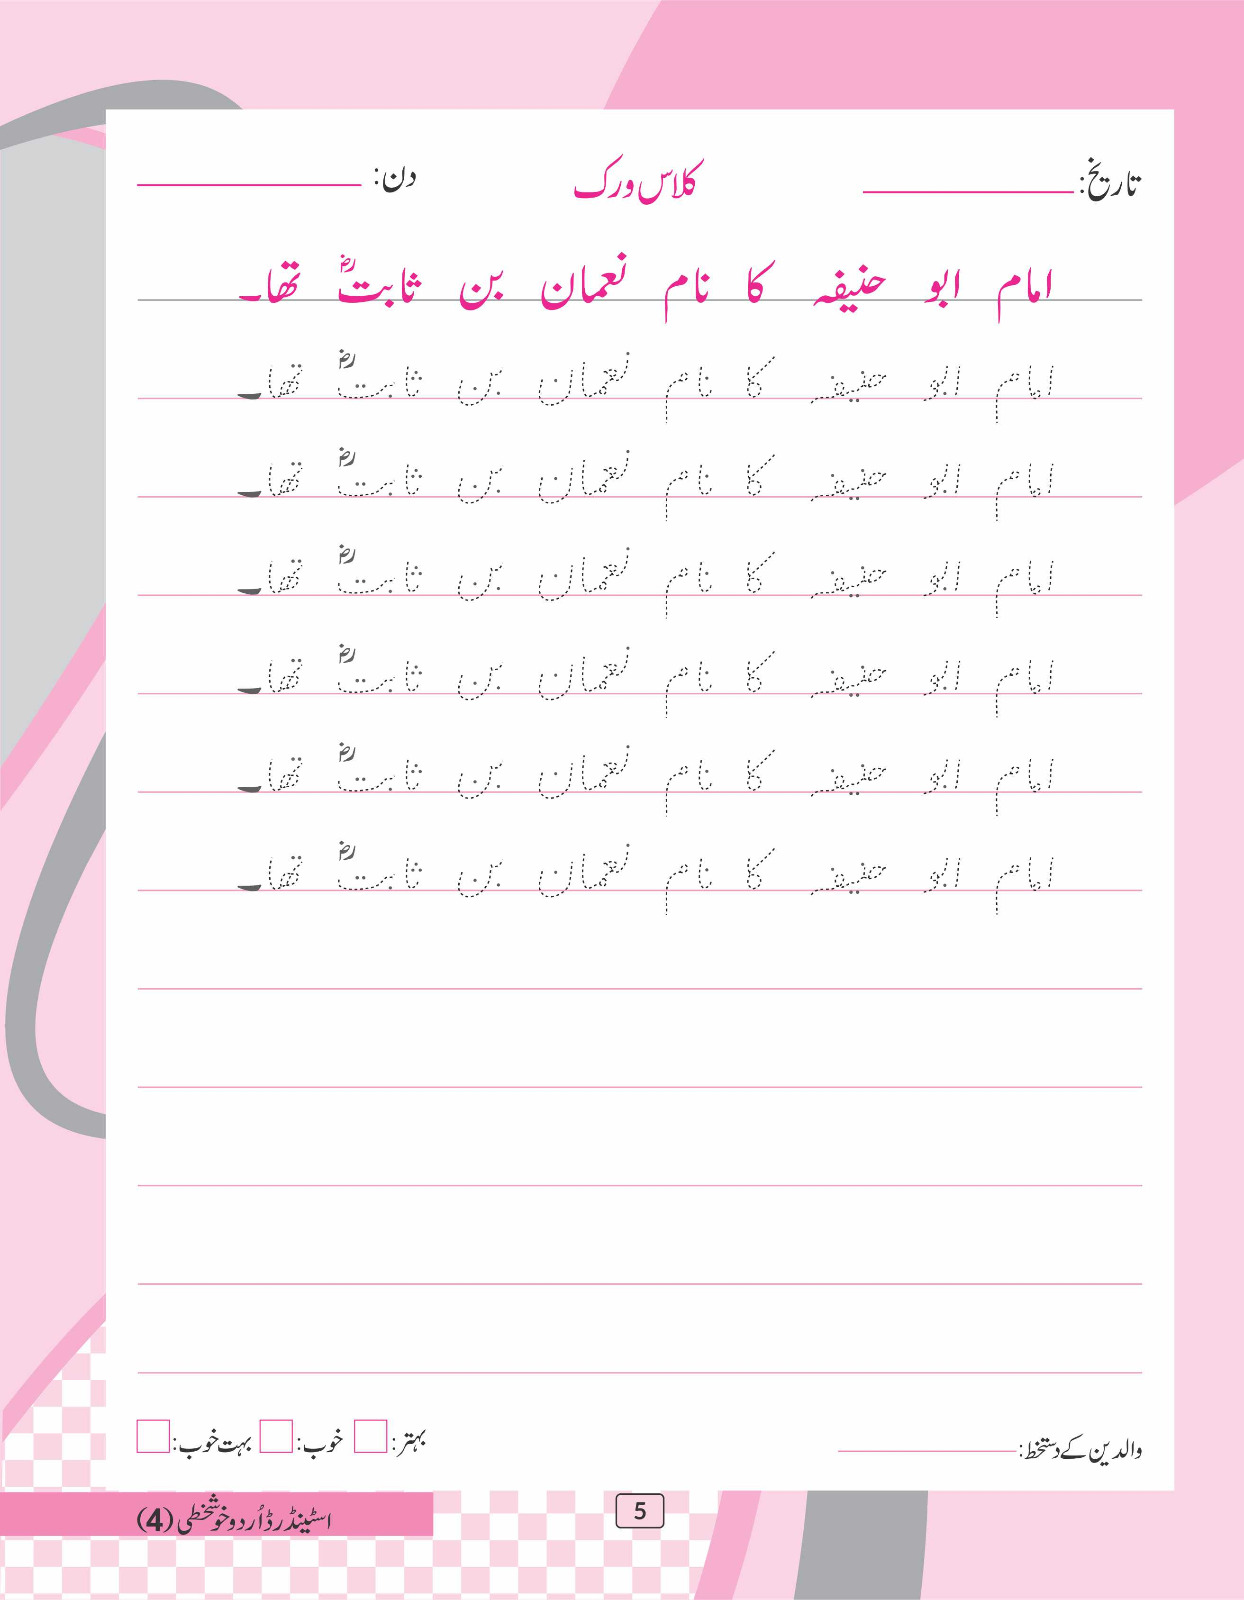 تاریخ: کلاس ورک دن:
امام ابو حنیفہ کا نام نعمان بن ثابتؓ تھا۔
امام ابو حنیفہ کا نام نعمان بن ثابتؓ تھا۔
امام ابو حنیفہ کا نام نعمان بن ثابتؓ تھا۔
امام ابو حنیفہ کا نام نعمان بن ثابتؓ تھا۔
امام ابو حنیفہ کا نام نعمان بن ثابتؓ تھا۔
امام ابو حنیفہ کا نام نعمان بن ثابتؓ تھا۔
امام ابو حنیفہ کا نام نعمان بن ثابتؓ تھا۔
والدین کے دستخط: بہتر: خوب: بہت خوب:
5
اسٹینڈرڈ اُردو خوشخطی (4)